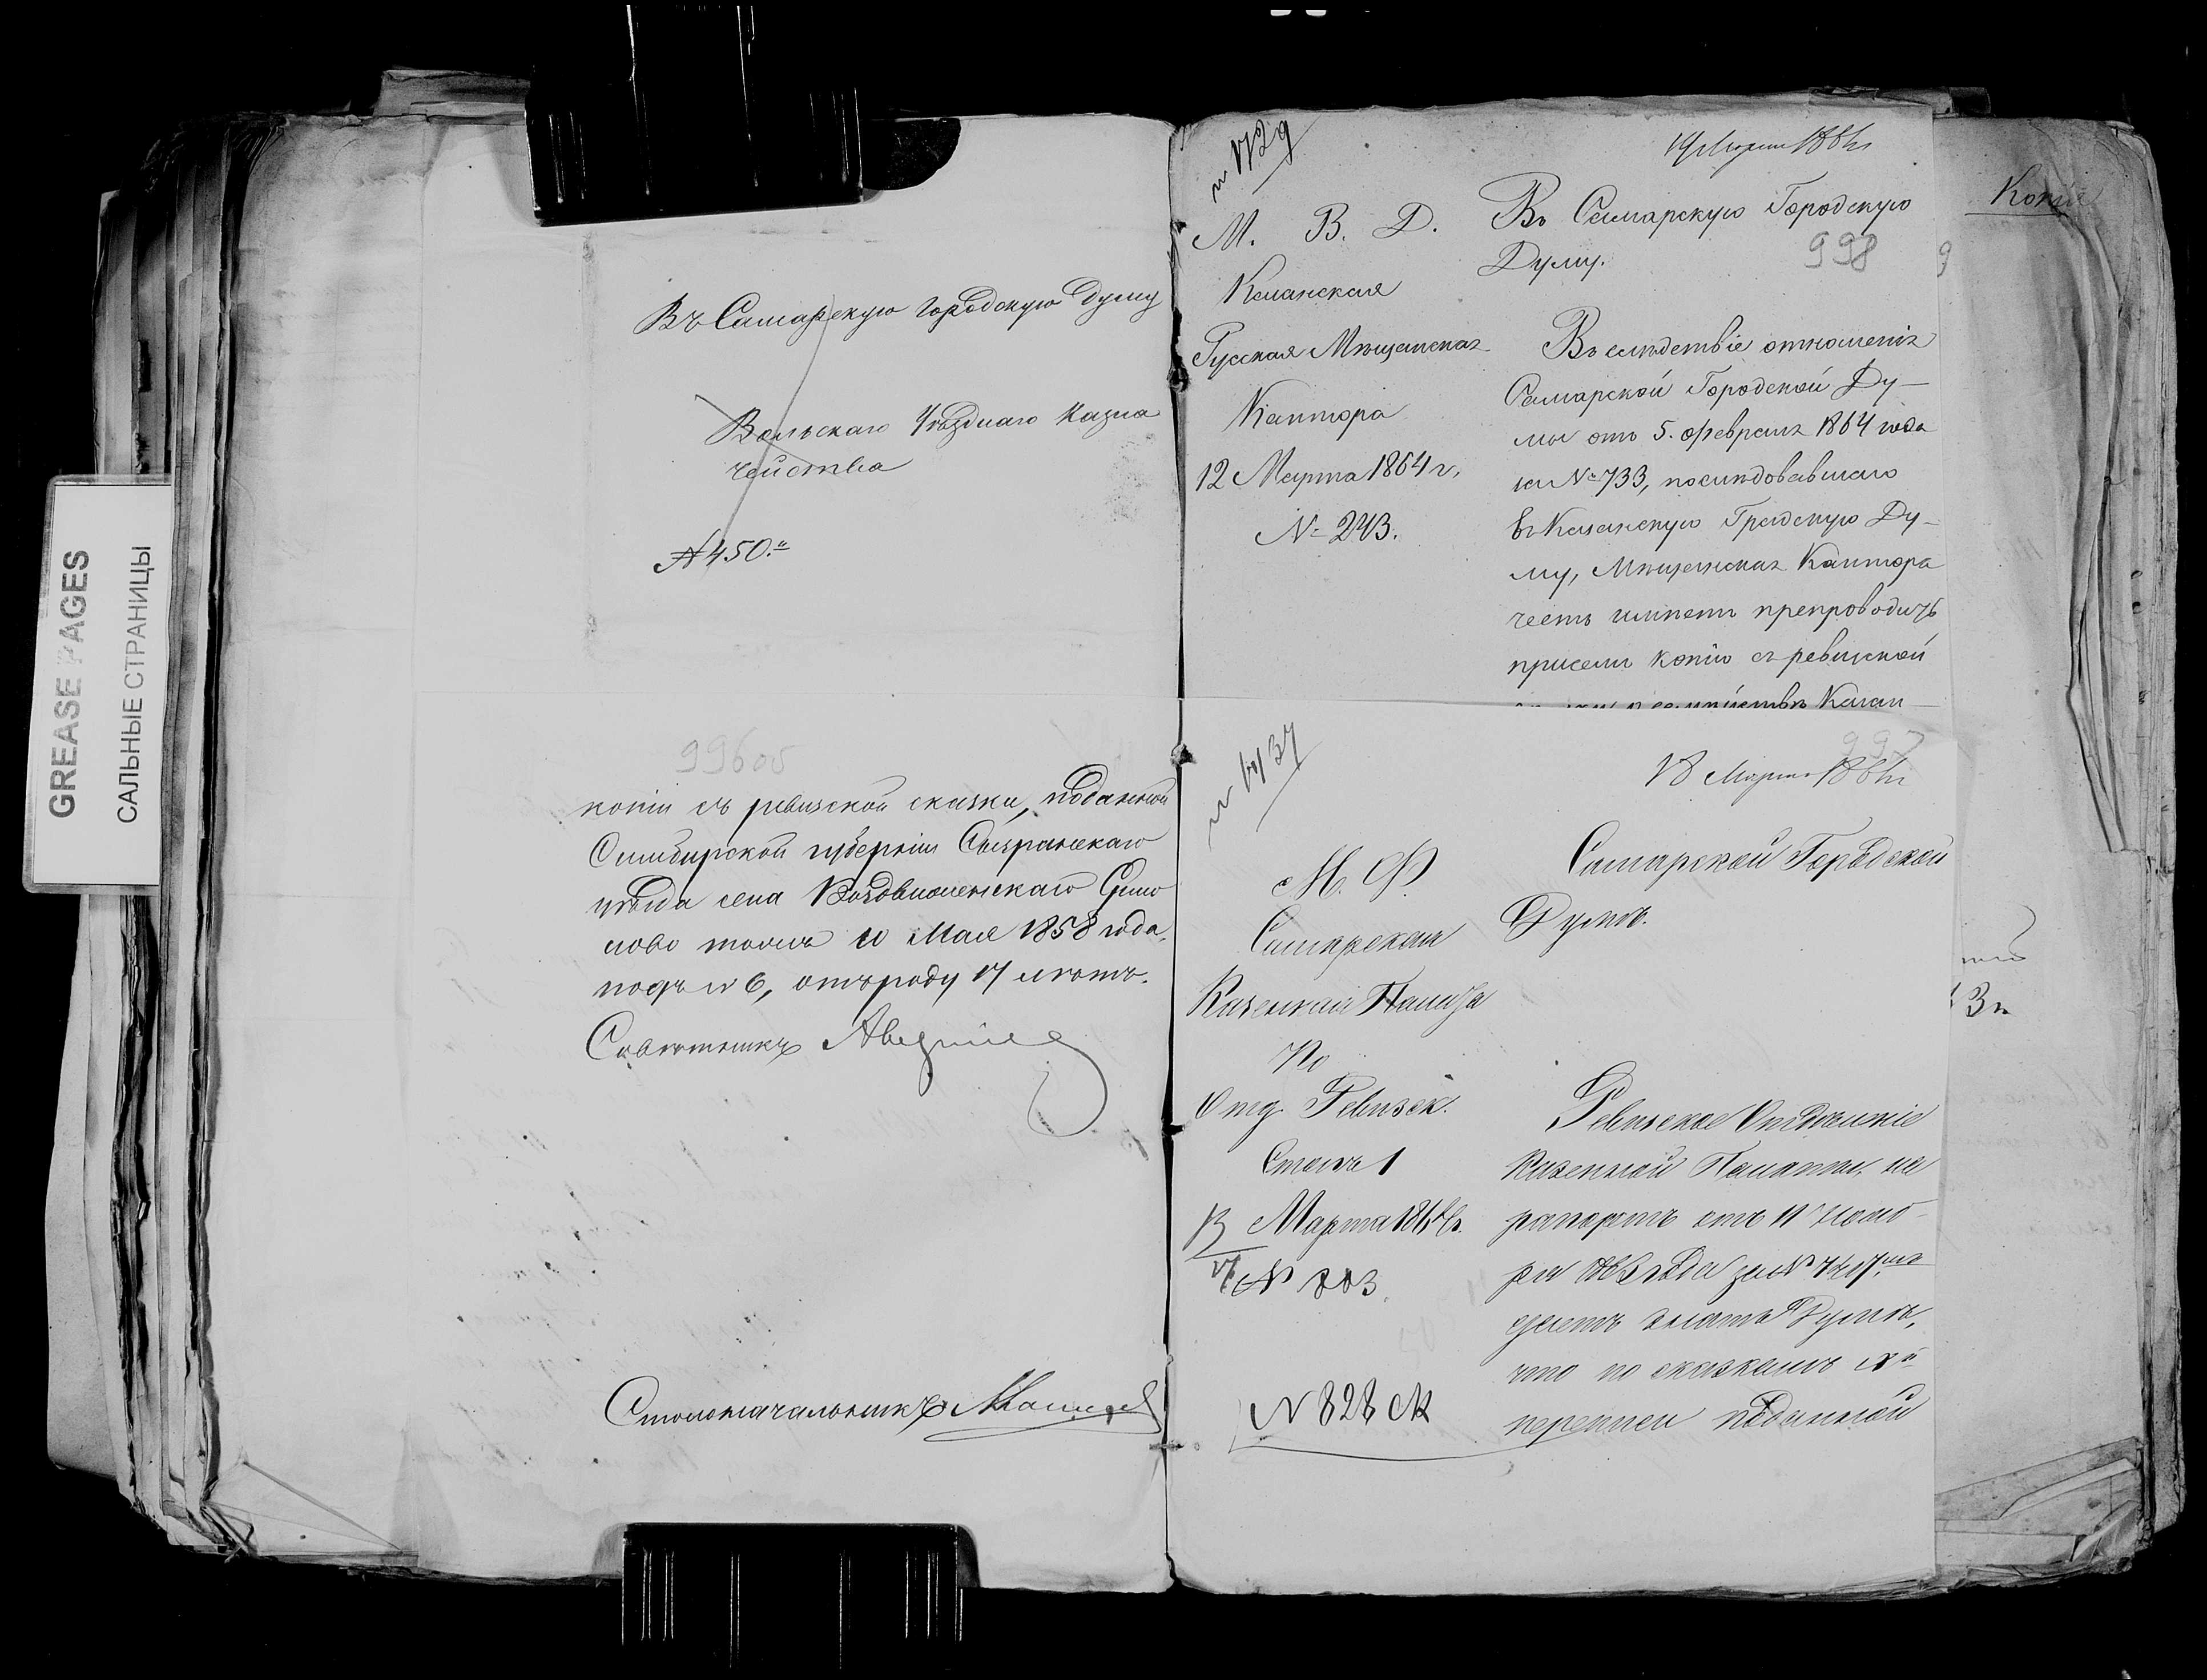 GREASE PAGES
САЛЬНЫЕ СТРАНИЦЫ
Въ Самарскую городскую думу
Вольскаго Уѣзднаго Казна
чейства
№ 450.
996об
копіи съ ревизской сказки, поданной
Симбирской губерніи Сызранскаго
уѣзда села Воздвиженскаго
тожъ 10 Мая 1858 года,
подъ № 6, отъ роду 17 лѣтъ.
Совѣтникъ
Столоначальникъ
№ 1729
19 Марта 1864 г
М. В. Д.
Казанская
Русская Мѣщанская
Контора
12 Марта 1864 г.
№ 243.
Въ Самарскую Городскую
Думу.
998
Въ слѣдствіе отношенія
Самарской Городской Ду-
мы отъ 5. февраля 1864 года
за № 733, послѣдовавшаго
въ Казанскую Градскую Ду-
му, Мѣщанская Контора
честь имѣетъ препроводить
присемъ копію съ ревизской
семѣйствѣ Казан-
997
18 Марта 1864 г
М. Ф.
Самарская
Казенная Палата
По
Отд. Ревизск.
Столъ 1
Марта 1864 г.
№ 803
№ 828
Самарской Городской
Думѣ.
Ревизское Отдѣленіе
Казенной Палаты, на
рапортъ отъ 11 Нояб-
ря года за №
даетъ знать Думѣ,
что по сказкамъ
переписи поданной
Копія